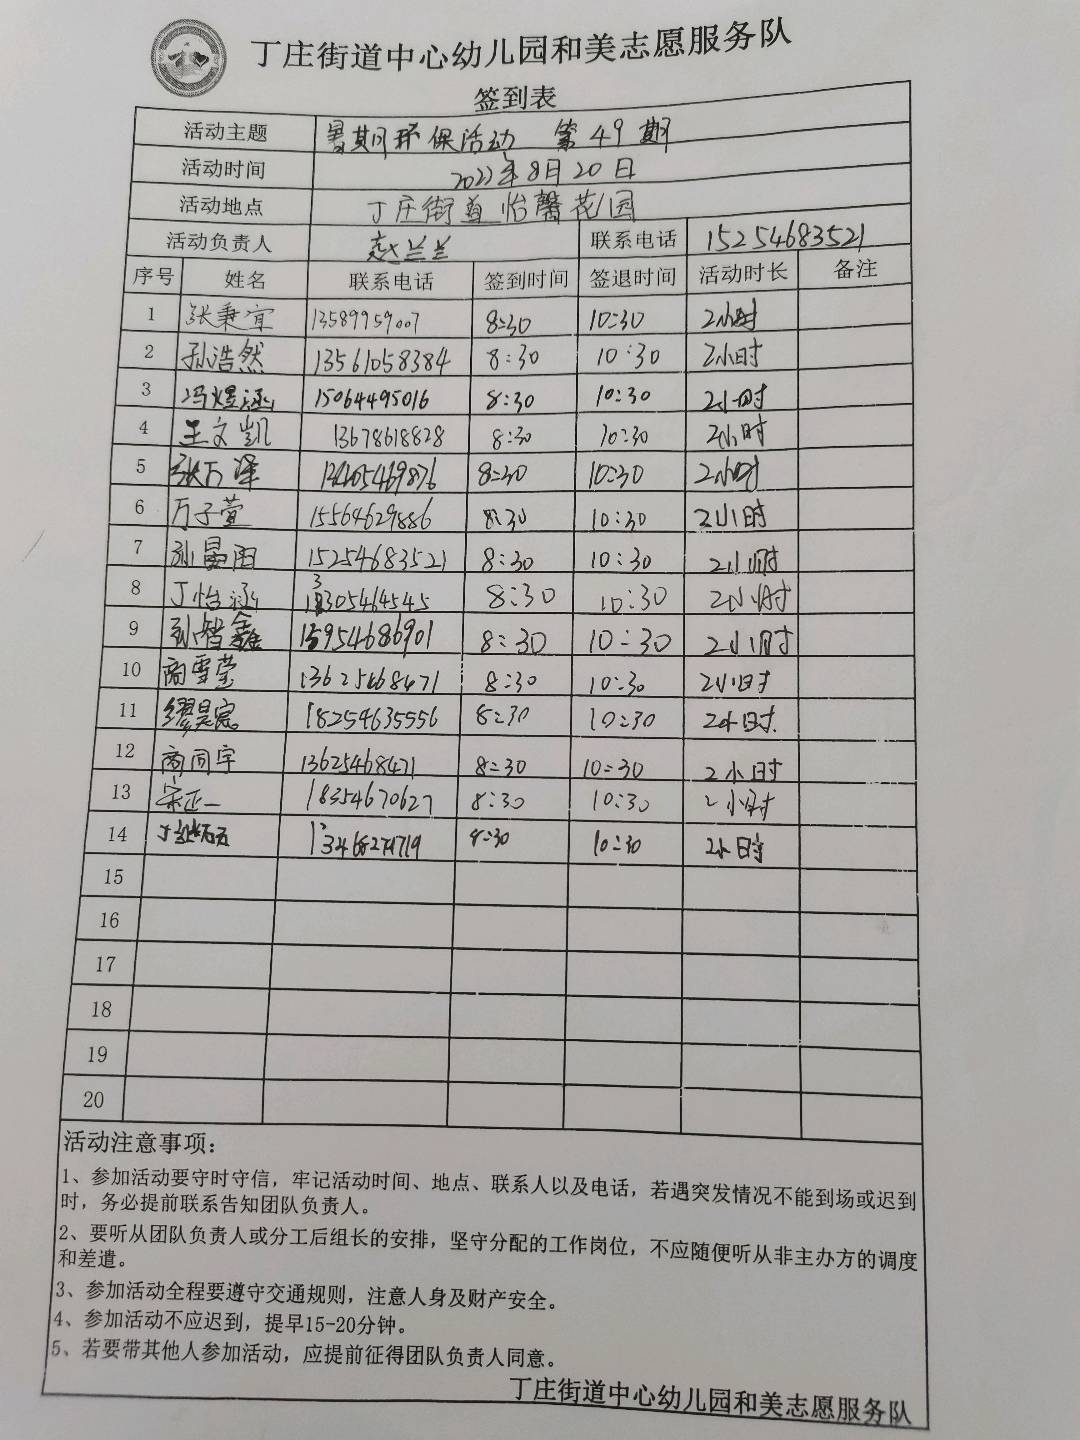 丁庄街道中心幼儿园和美志愿服务队
签到表
活动主题 暑期环保活动 第49期
活动时间 2022年8月20日
活动地点 丁庄街道怡馨花园
活动负责人 赵兰兰 联系电话 15254683521
序号 姓名 联系电话 签到时间 签退时间 活动时长 备注
1 张秉宜 13589959007 8:30 10:30 2小时
2 孙浩然 13561058384 8:30 10:30 2小时
3 冯煜涵 15064495016 8:30 10:30 2小时
4 王文凯 13678618828 8:30 10:30 2小时
5 张万泽 8:30 10:30 2小时
6 万子萱 15564629886 8:30 10:30 2小时
7 15254683521 8:30 10:30 2小时
8 丁怡涵 13305464545 8:30 10:30 2小时
9 孙智鑫 15954686901 8:30 10:30 2小时
10 商雪莹 13625468471 8:30 10:30 2小时
11 缪昊宸 18254635556 8:30 10:30 2小时
12 商同宇 13625468471 8:30 10:30 2小时
13 宋正一 18354670627 8:30 10:30 2小时
14 8:30 10:30 2小时
15
16
17
18
19
20
活动注意事项：
1、参加活动要守时守信，牢记活动时间、地点、联系人以及电话，若遇突发情况不能到场或迟到
时，务必提前联系告知团队负责人。
2、要听从团队负责人或分工后组长的安排，坚守分配的工作岗位，不应随便听从非主办方的调度
和差遣。
3、参加活动全程要遵守交通规则，注意人身及财产安全。
4、参加活动不应迟到，提早15-20分钟。
5、若要带其他人参加活动，应提前征得团队负责人同意。
丁庄街道中心幼儿园和美志愿服务队